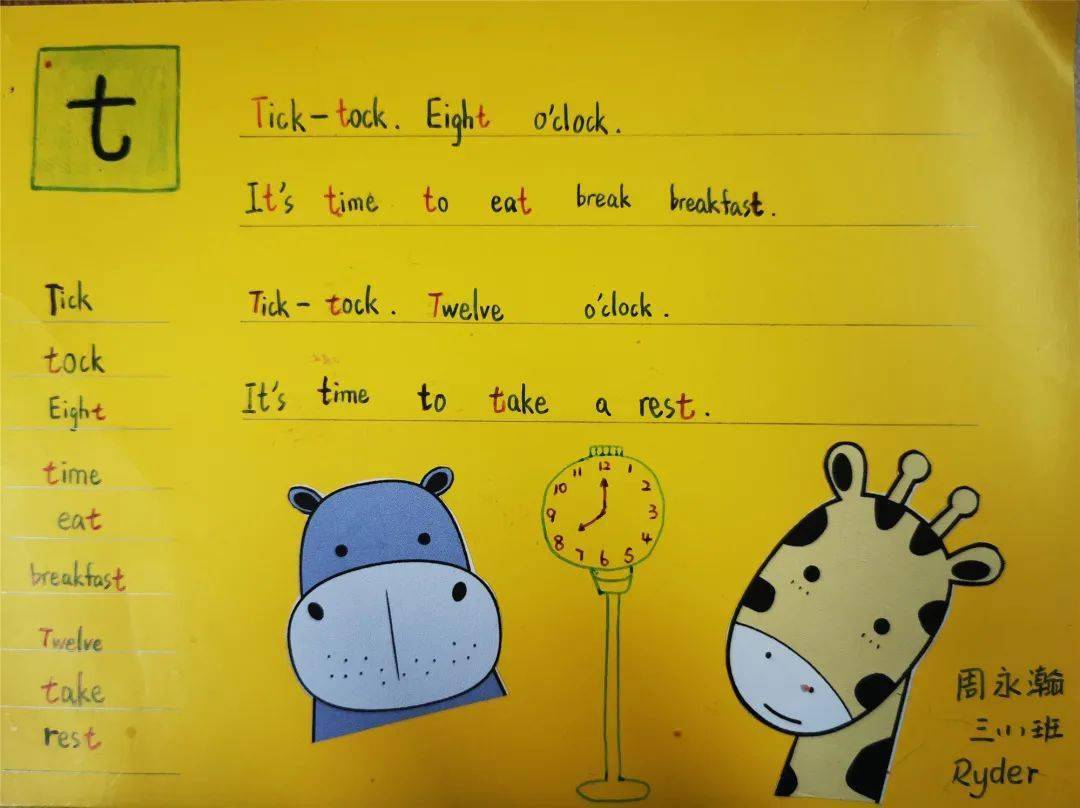 t
Tick-tock. Eight o'clock.
It's time to eat break breakfast.
Tick-tock. Twelve o'clock.
It's time to take a rest.
Tick
tock
Eight
time
eat
breakfast
Twelve
take
rest
12
1
2
3
4
5
6
7
8
9
10
11
周永瀚
三小班
Ryder